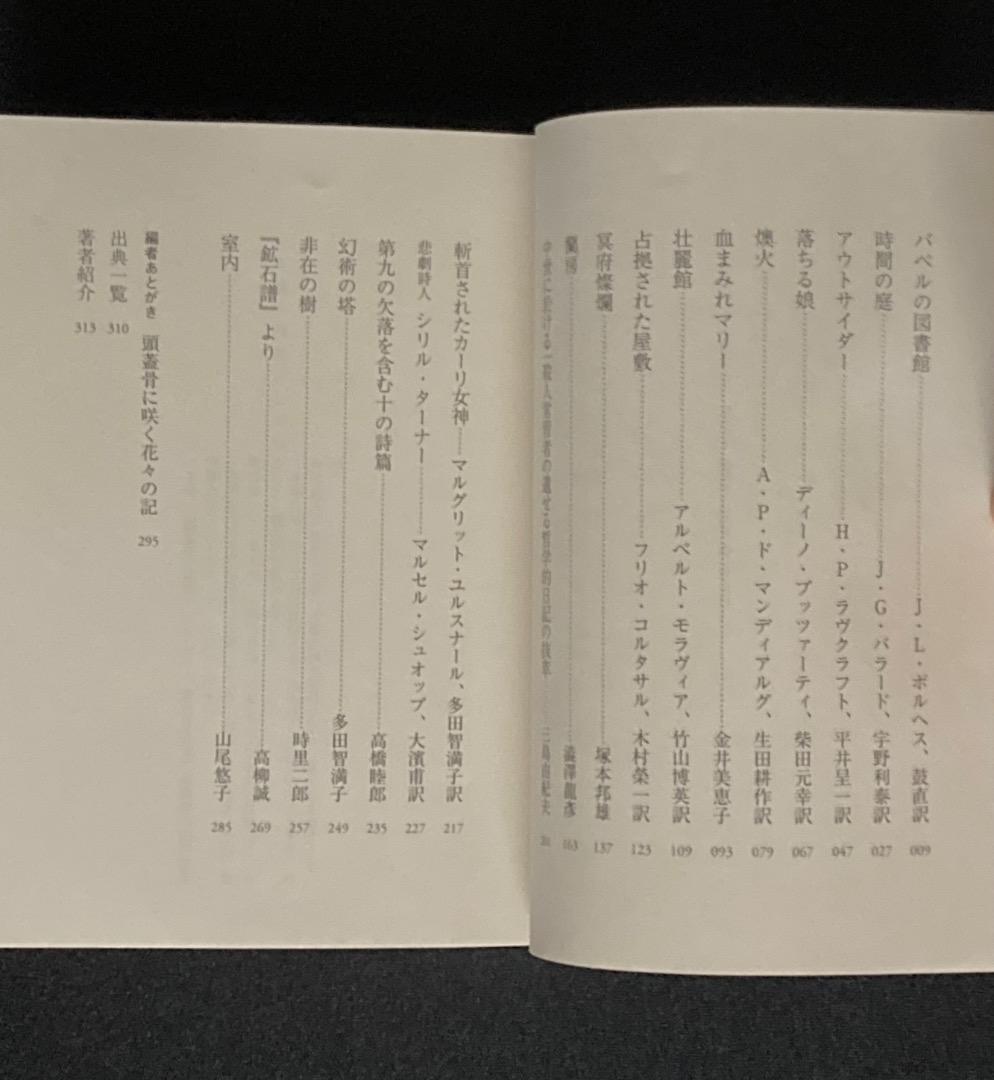 バベルの図書館 J・L・ボルヘス、鼓直訳 009
時間の庭 J・G・バラード、宇野利泰訳 027
アウトサイダー H・P・ラヴクラフト、平井呈一訳 047
落ちる娘 ディーノ・ブッツァーティ、柴田元幸訳 067
燠火 A・P・ド・マンディアルグ、生田耕作訳 079
血まみれマリー 金井美恵子 093
壮麗館 アルベルト・モラヴィア、竹山博英訳 109
占拠された屋敷 フリオ・コルタサル、木村榮一訳 123
冥府燦爛 塚本邦雄 137
蘭房 澁澤龍彥 163
中世に於ける一殺人常習者の遺せる哲学的日記の抜萃 三島由紀夫
斬首されたカーリ女神 マルグリット・ユルスナール、多田智満子訳 217
悲劇詩人 シリル・ターナー マルセル・シュオッブ、大濱甫訳 227
第九の欠落を含む十の詩篇 高橋睦郎 235
幻術の塔 多田智満子 249
非在の樹 時里二郎 257
『鉱石譜』より 高柳誠 269
室内 山尾悠子 285
編者あとがき 頭蓋骨に咲く花々の記 295
出典一覧 310
著者紹介 313